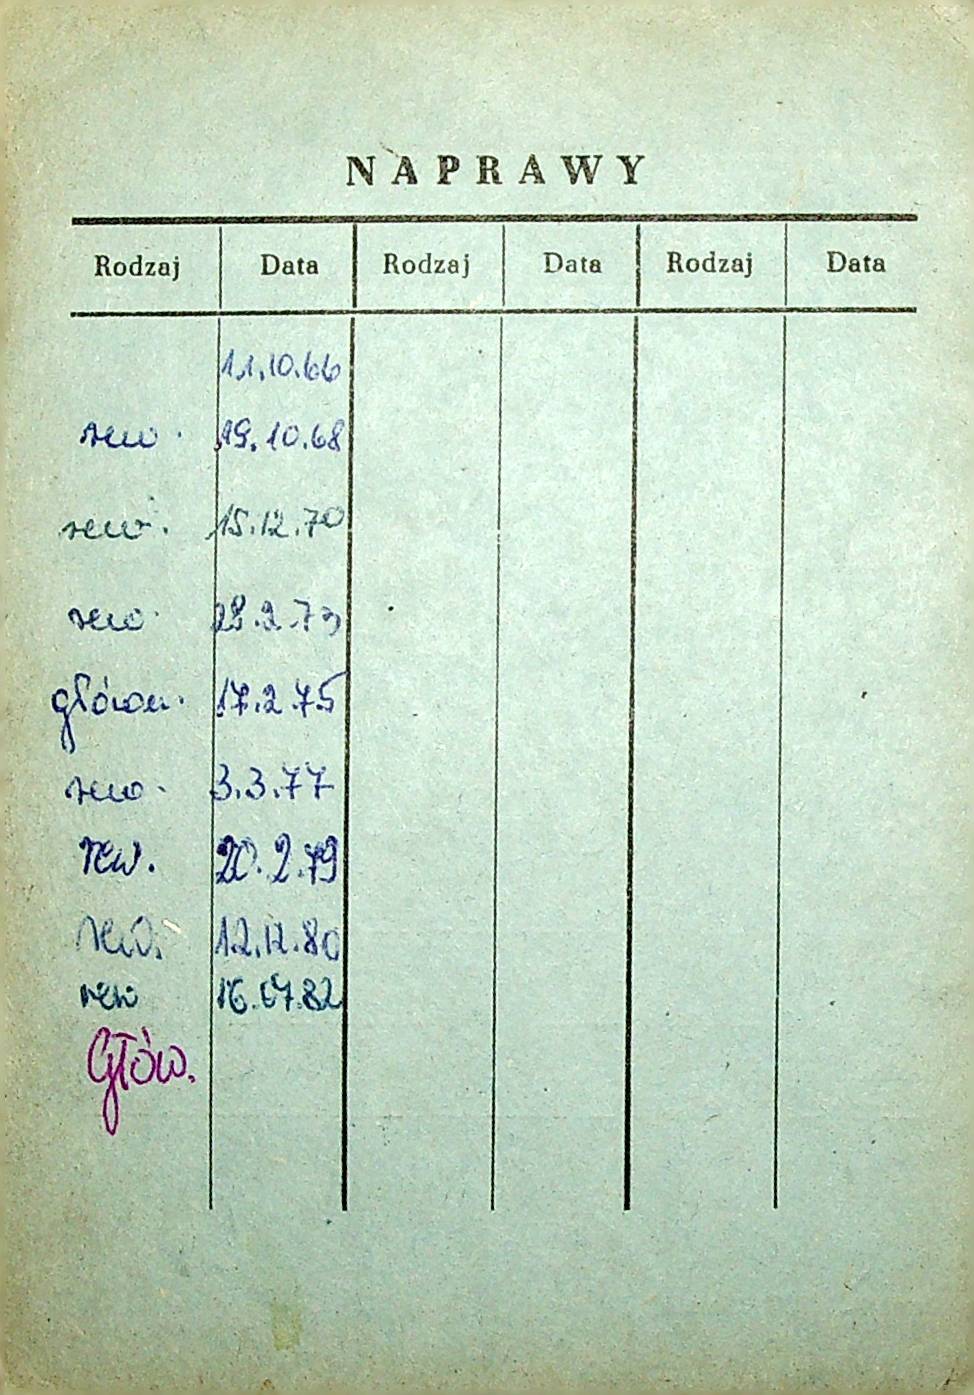 NAPRAWY
Rodzaj Data Rodzaj Data Rodzaj Data
11.10.66
rew. 19.10.68
rew. 15.12.70
rew. 22.2.73
główn. 17.2.75
rew. 3.3.77
rew. 20.2.79
rew. 12.12.80
rew 16.07.82
Głów.